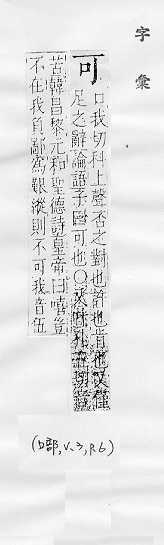 字彙
可 口我切科上聲否之對也許也肯也又僅
足之辭論語子曰可也○又叶孔五切音
苦韓昌黎元和聖德詩皇帝曰嘻豈
不在我負鄙為艱縱則不可我音伍
(口部,V.3,P.6)